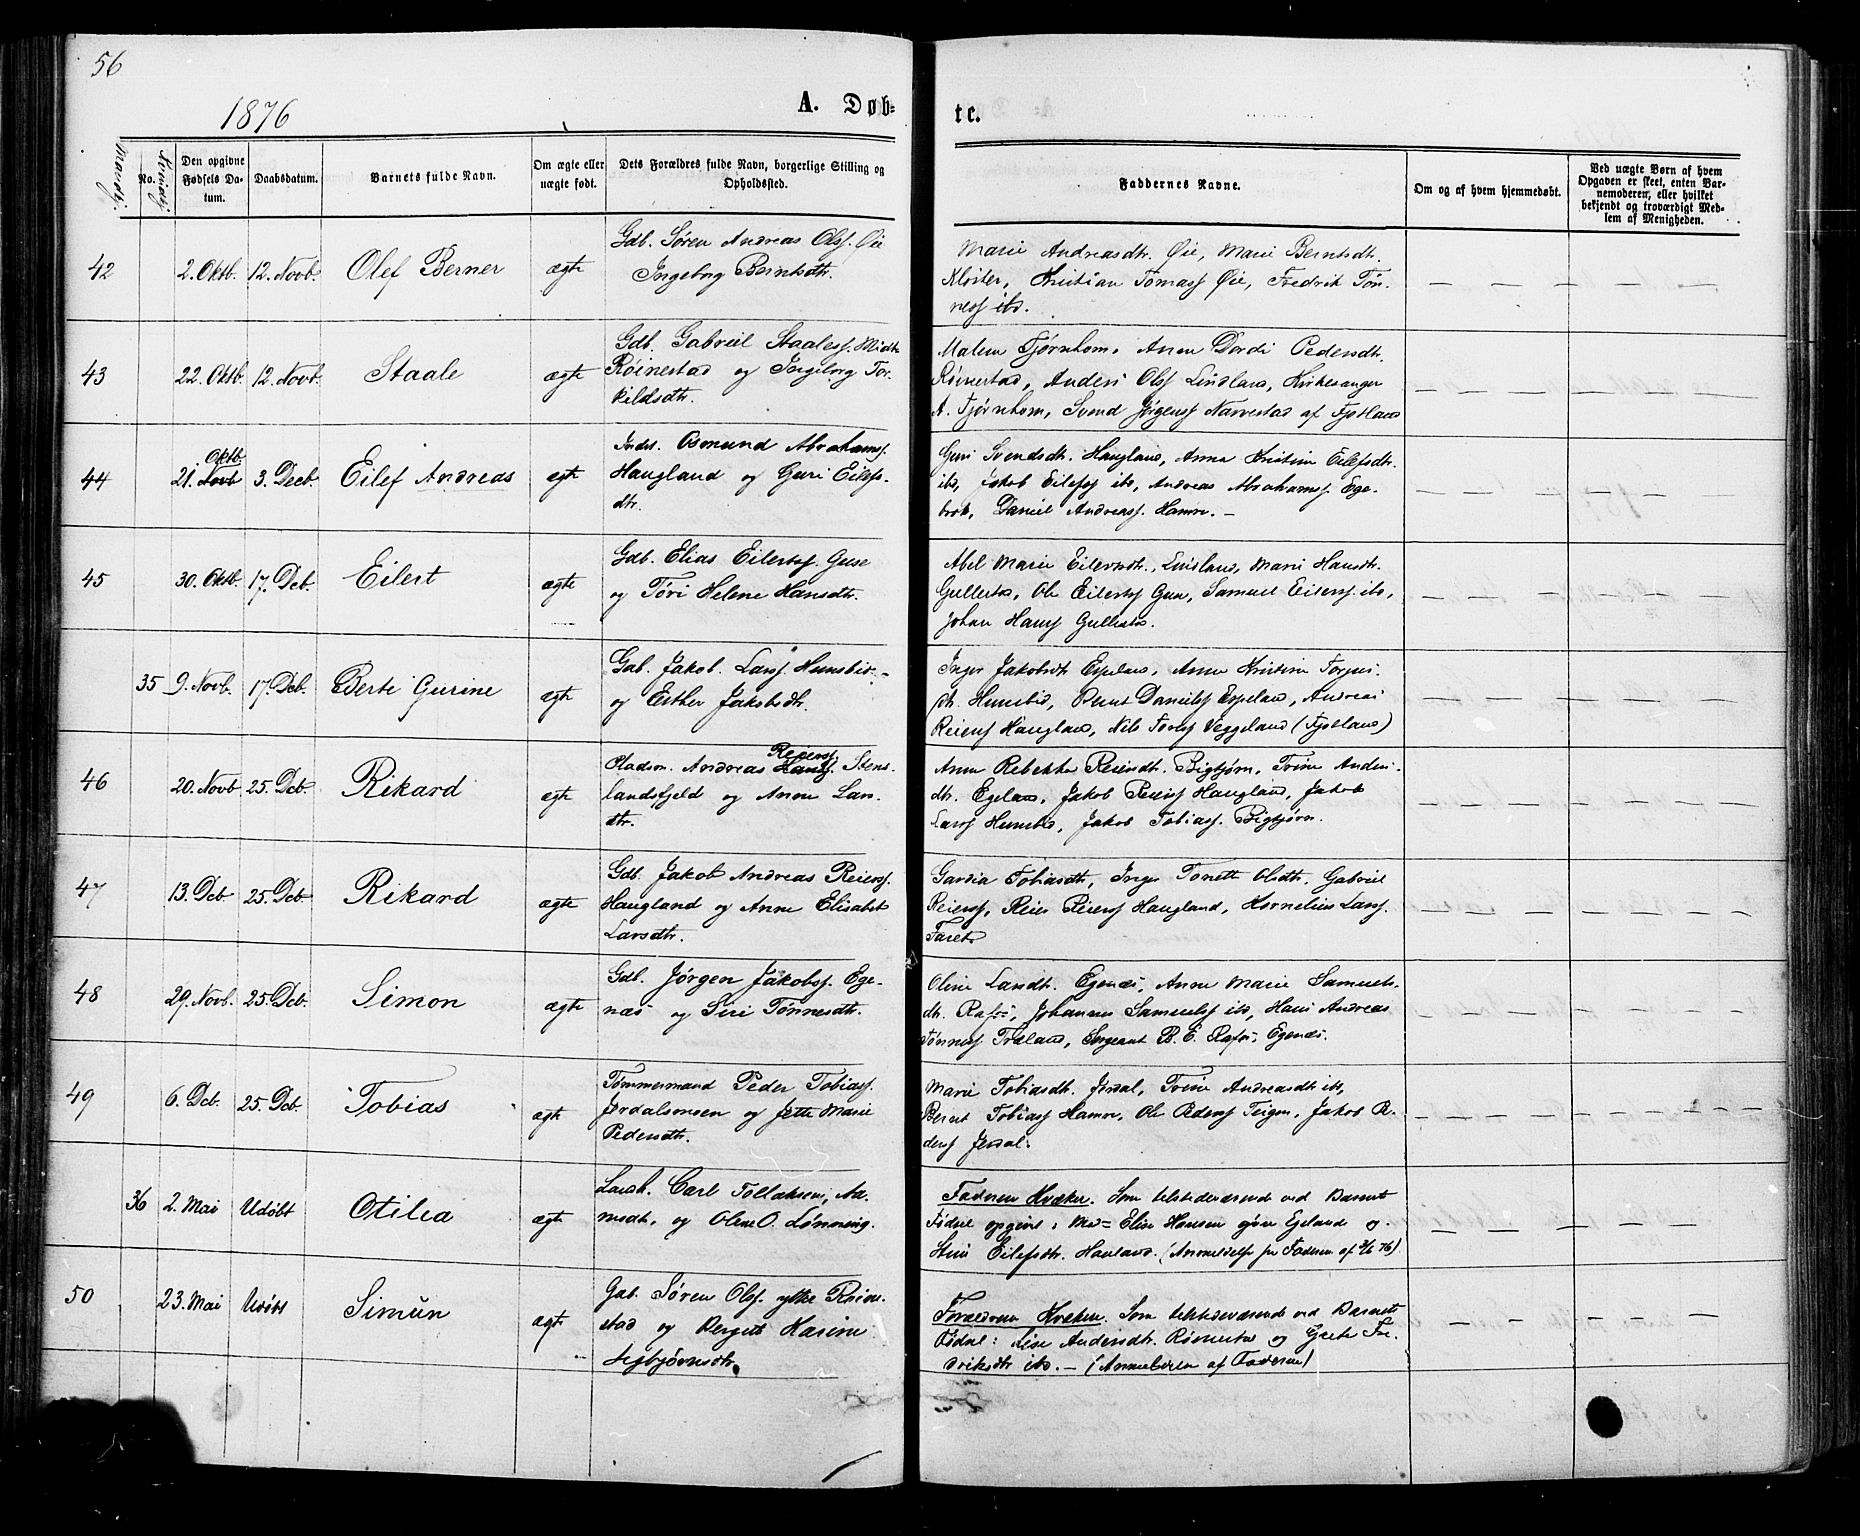 56
1876
A. Døb=
te.
Mandkj.
No.
Kvindekj.
Den opgivne Fødsels Da-tum.
Daabsdatum.
Barnets fulde Navn.
Om ægte eller uægte født.
Dets Forældres fulde Navn, borgerlige Stilling og Opholdssted.
Faddernes Navne.
Om og af hvem hjemmedøbt.
Ved uægte Børn af hvem Opgaven er skeet, enten Bar-nemoderen, eller hvilket bekjendt og troværdigt Med-lem af Menigheden.
42 2. Oktb. 12. Novb. Olef Berner ægte
Gdb. Søren Andreas Olss. Øie
Ingeborg Berntsdtr.
Marie Andreasdtr. Øie, Marie Berntsdtr.
Kloster, Kristian Tomass Øie, Fredrik Tøn-
ness ibd.
43 22. Oktb. 12. Novb. Staale ægte
Gdb. Gabriel Staaless. Midt
Røinestad og Ingeborg Tor-
kildsdtr.
Malene Fjørnhom, Anne Dordi Pedersdtr.
Røinestad, Anders Olss Lindland, Kirkesanger
A. Fjørnhom, Svend Jørgenss Narvestad af Fjotland
44 21. Oktb. Novb 3. Decb. Eilef Andreas ægte
Inds. Osmund Abrahams.
Haugland og Guri Eilefs-
dtr.
Guri Svendsdtr. Haugland, Anna Kristine Eilefsdtr.
ibd, Jakob Eilefss ibd, Andreas Abrahamss. Ege-
brok, Daniel Andreass. Hamre. –
45 30. Oktb. 17. Dcb. Eilert ægte
Gdb. Elias Eilertss. Guse
og Töri Helene Hansdtr.
Abel Marie Eilertsdtr. Lindland, Marie Hansdtr.
Gullestad, Ole Eilertss Guse, Samuel Eilerss. ibd,
Johan Hanss Gullestad.
35 9. Novb. 17. Dcb. Berte Gurine ægte
Gdb. Jakob Larss. Hunsbed –
og Esther Jakobsdtr.
Inger Jakobsdtr Espeland, Anne Kristine Torgus-
dtr. Hunsbed, Bernt Danielss Espeland, Andreas
Reierss Haugland, Nils Tores Veggeland (Fjotland)
46 20. Novb 25. Dcb. Rikard ægte
Pladsm. Andreas Reierss. Stens-
landsfjeld og Anne Lars-
dtr.
Anne Rebekka Reiersdtr. Bigtjørn, Trine Anders-
dtr. Egeland, Jakob Reierss Haugland, Jakob
Larss Hunsbed, Jakob Tobiass. Bigtjørn.
47 13. Dcb 25. Dcb. Rikard ægte
Gdb. Jakob Andreas Reierss.
Haugland og Anne Elisabet
Larsdtr.
Gardia Tobiasdtr, Inger Tonette Olsdtr. Gabriel
Reierss, Reier Reierss Haugland, Kornelius Larss.
Faret
48 29. Novb. 25. Dcb. Simon ægte
Gdb. Jørgen Jakobss. Ege-
næs og Siri Tønnesdtr.
Oline Larsdtr. Egenæs, Anne Marie Samuels-
dtr. Rafos, Johannes Samuelss ibd, Hans Andreas
Tønness Træland, Sergeant B. E. Rafos, Egenæs.
49 6. Dcb. 25. Dcb. Tobias ægte
Tømmermand Peder Tobiass.
Jerdalsmoen og Jette Marie
Pedersdtr.
Marie Tobiasdtr. Jerdal, Trine Andreasdtr ibd,
Bernt Tobiass Hamre, Ole Pederss Teigen, Jakob Pe-
derss Jerdal.
36 2. Mai Udøbt Otilia ægte
Carl Tollaksen,
og Olene O. Lønning.
Faderen Kvæker. Som tilstedeværende ved Barnets
Fødsel opgives: Mad= Elise Hansen øvre Egeland og
Stine Eilefsdtr. Hauland. (Anmeldelse fra Faderen af 3/6 76).
50 23. Mai Udøbt Simün ægte
Gdb. Søren Olss. ytre Røine-
stad og Bergite Karine
Sigbjørnsdtr.
Forældrene Kvækere. Som tilstedeværende ved Barnets
Fødsel: Lise Andersdtr. Røinestad og Grete Fre-
driksdtr ibd. – (Anmeldelse af Faderen)